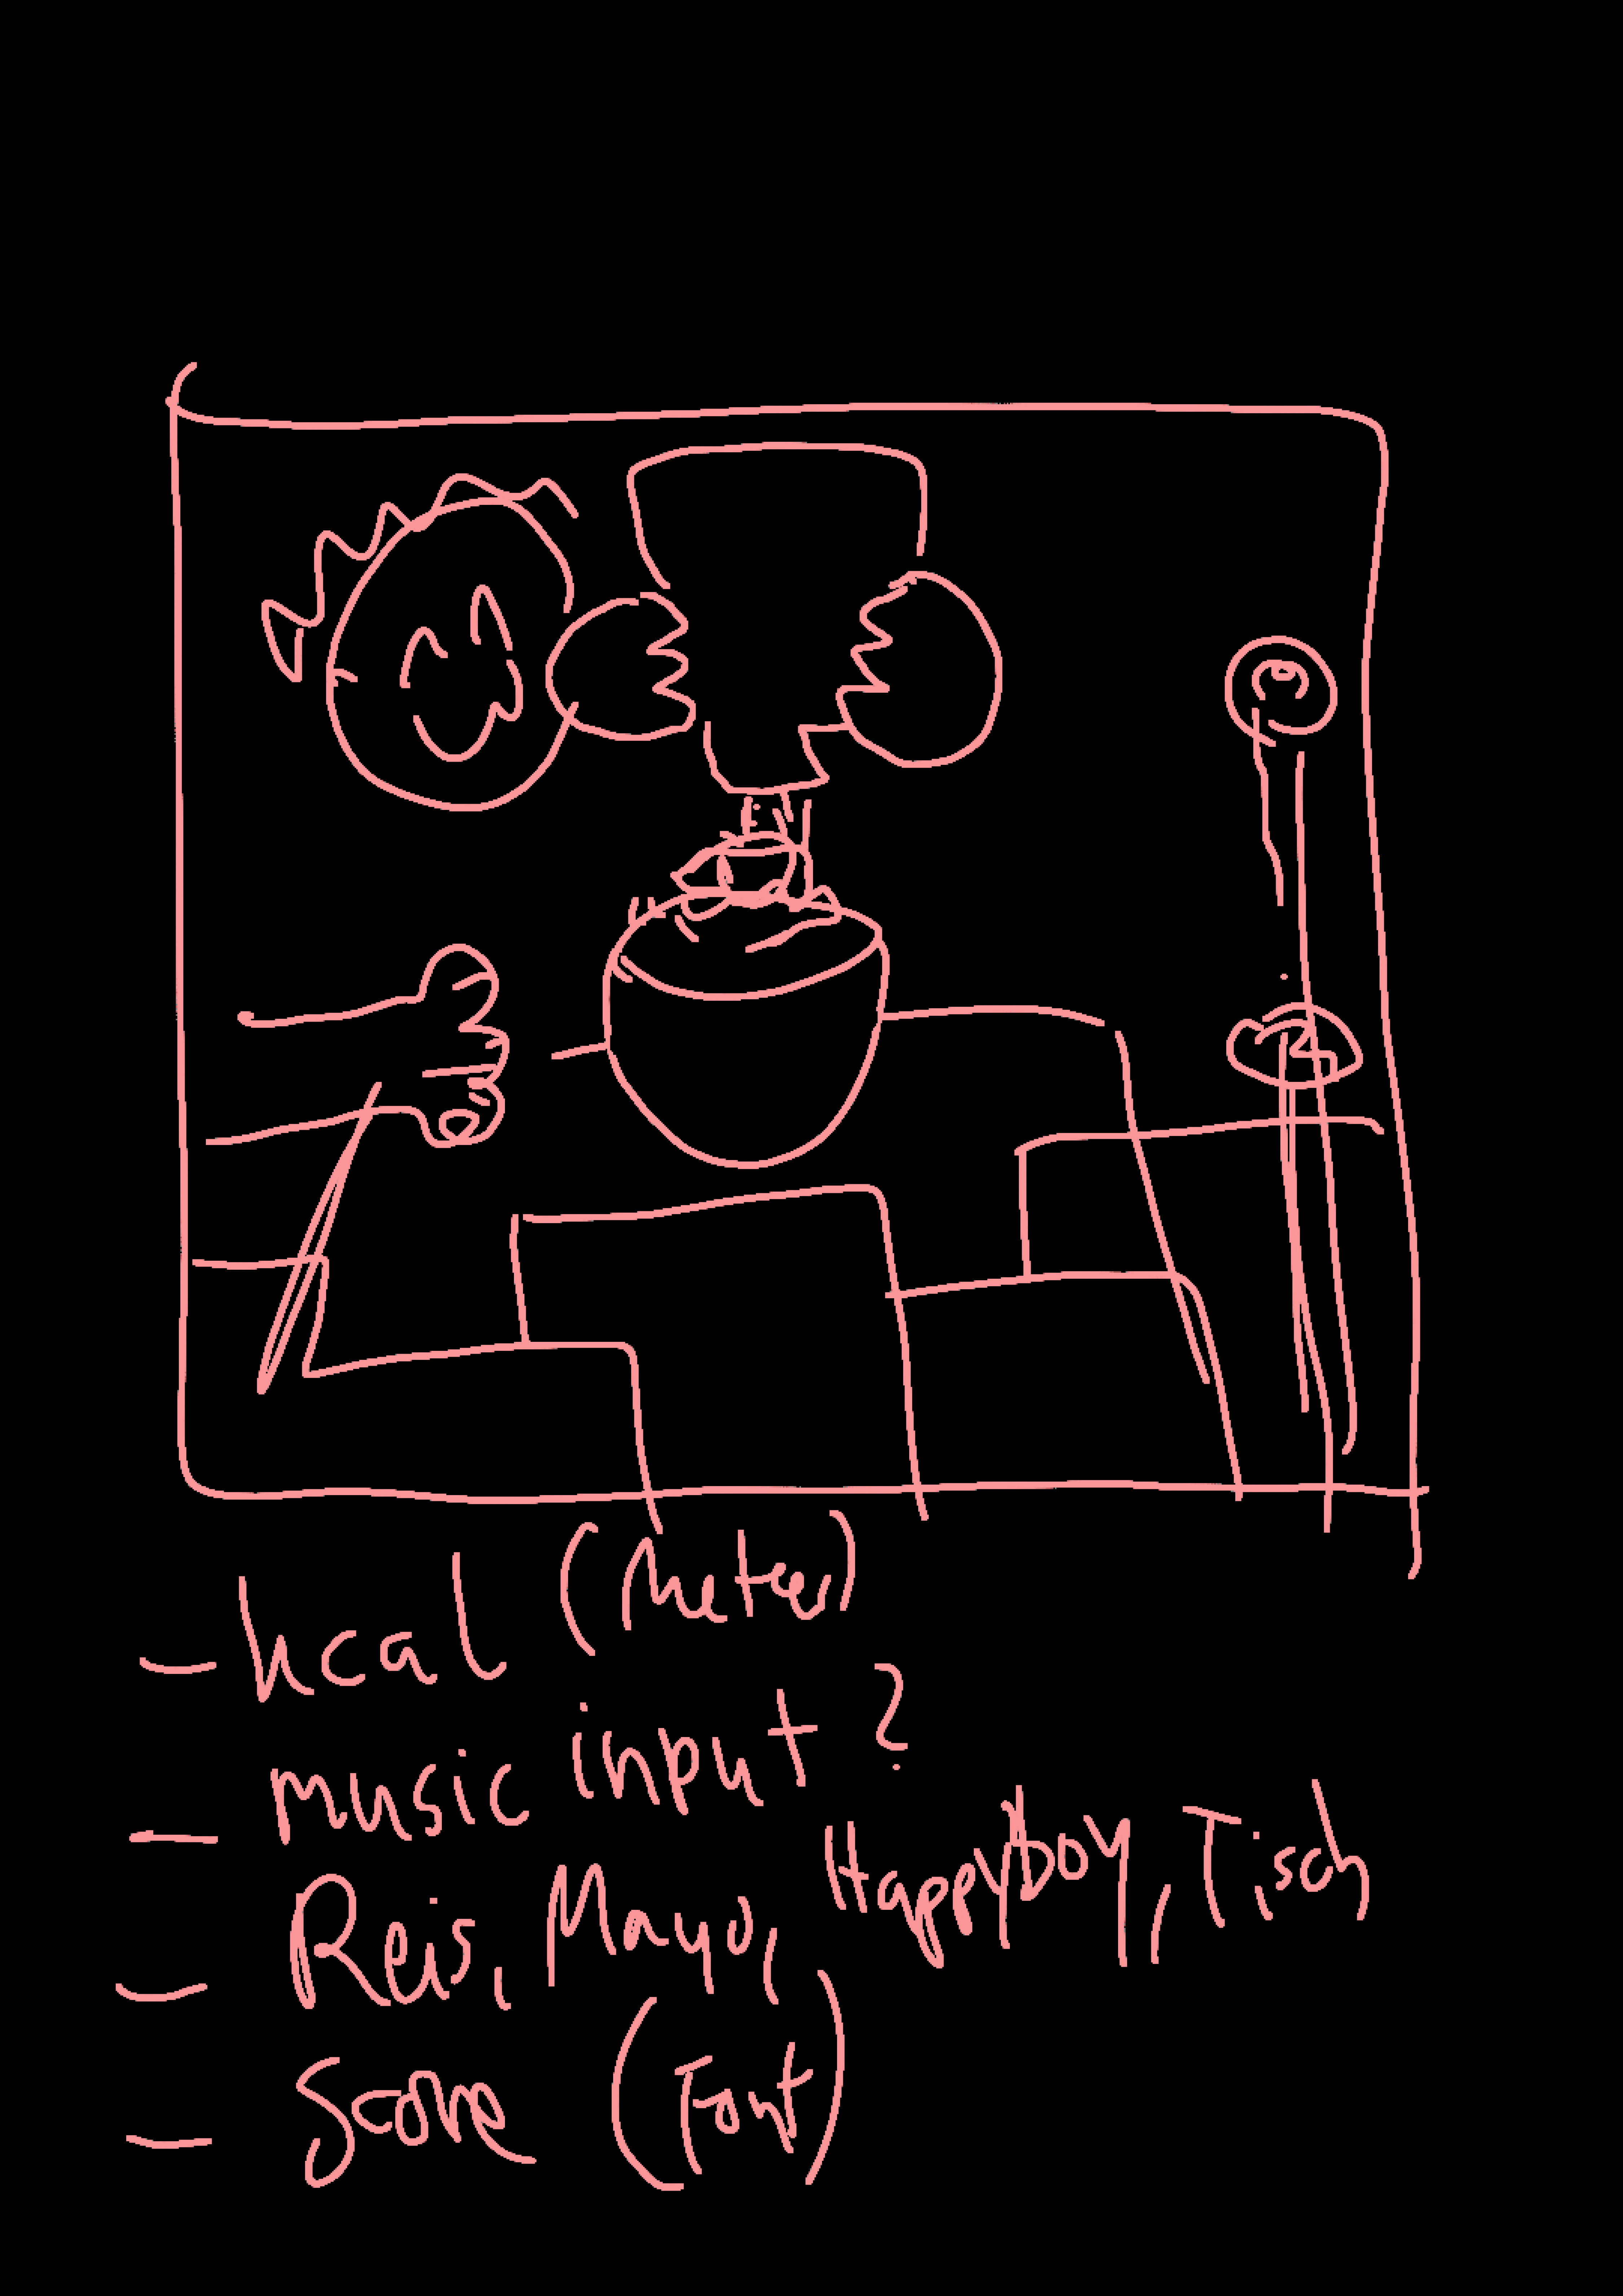 - kcal (Meter)
- music input?
- Reis, Mayo, Happyboy, Tisch
- Score (Font)